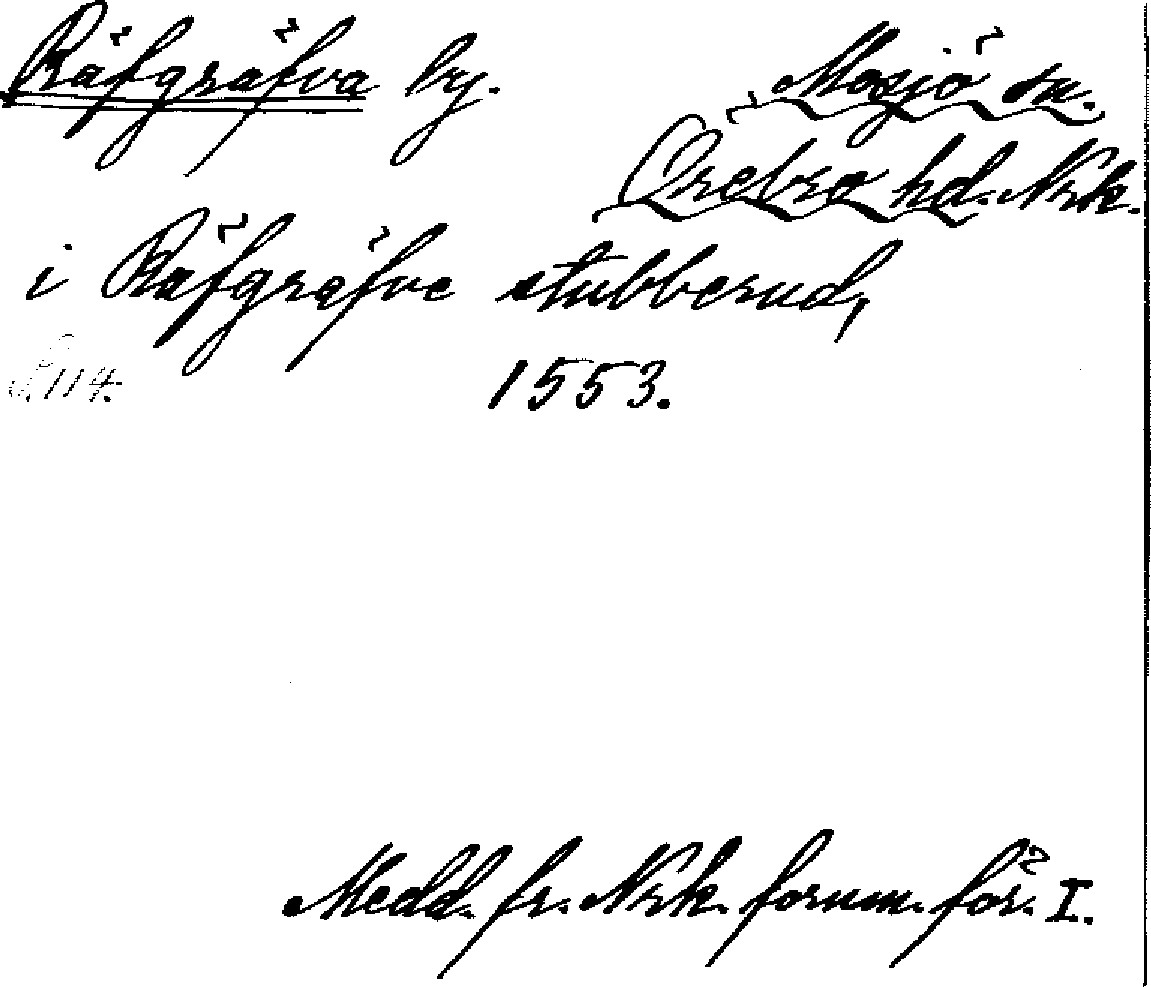 Räfgräfva by.
Mosjö sn.
Örebro hd. Nrk.
i Räfgräfve stubberud,
S. 114.
1553.
Medd. fr. Nrk. fornm. för. I.